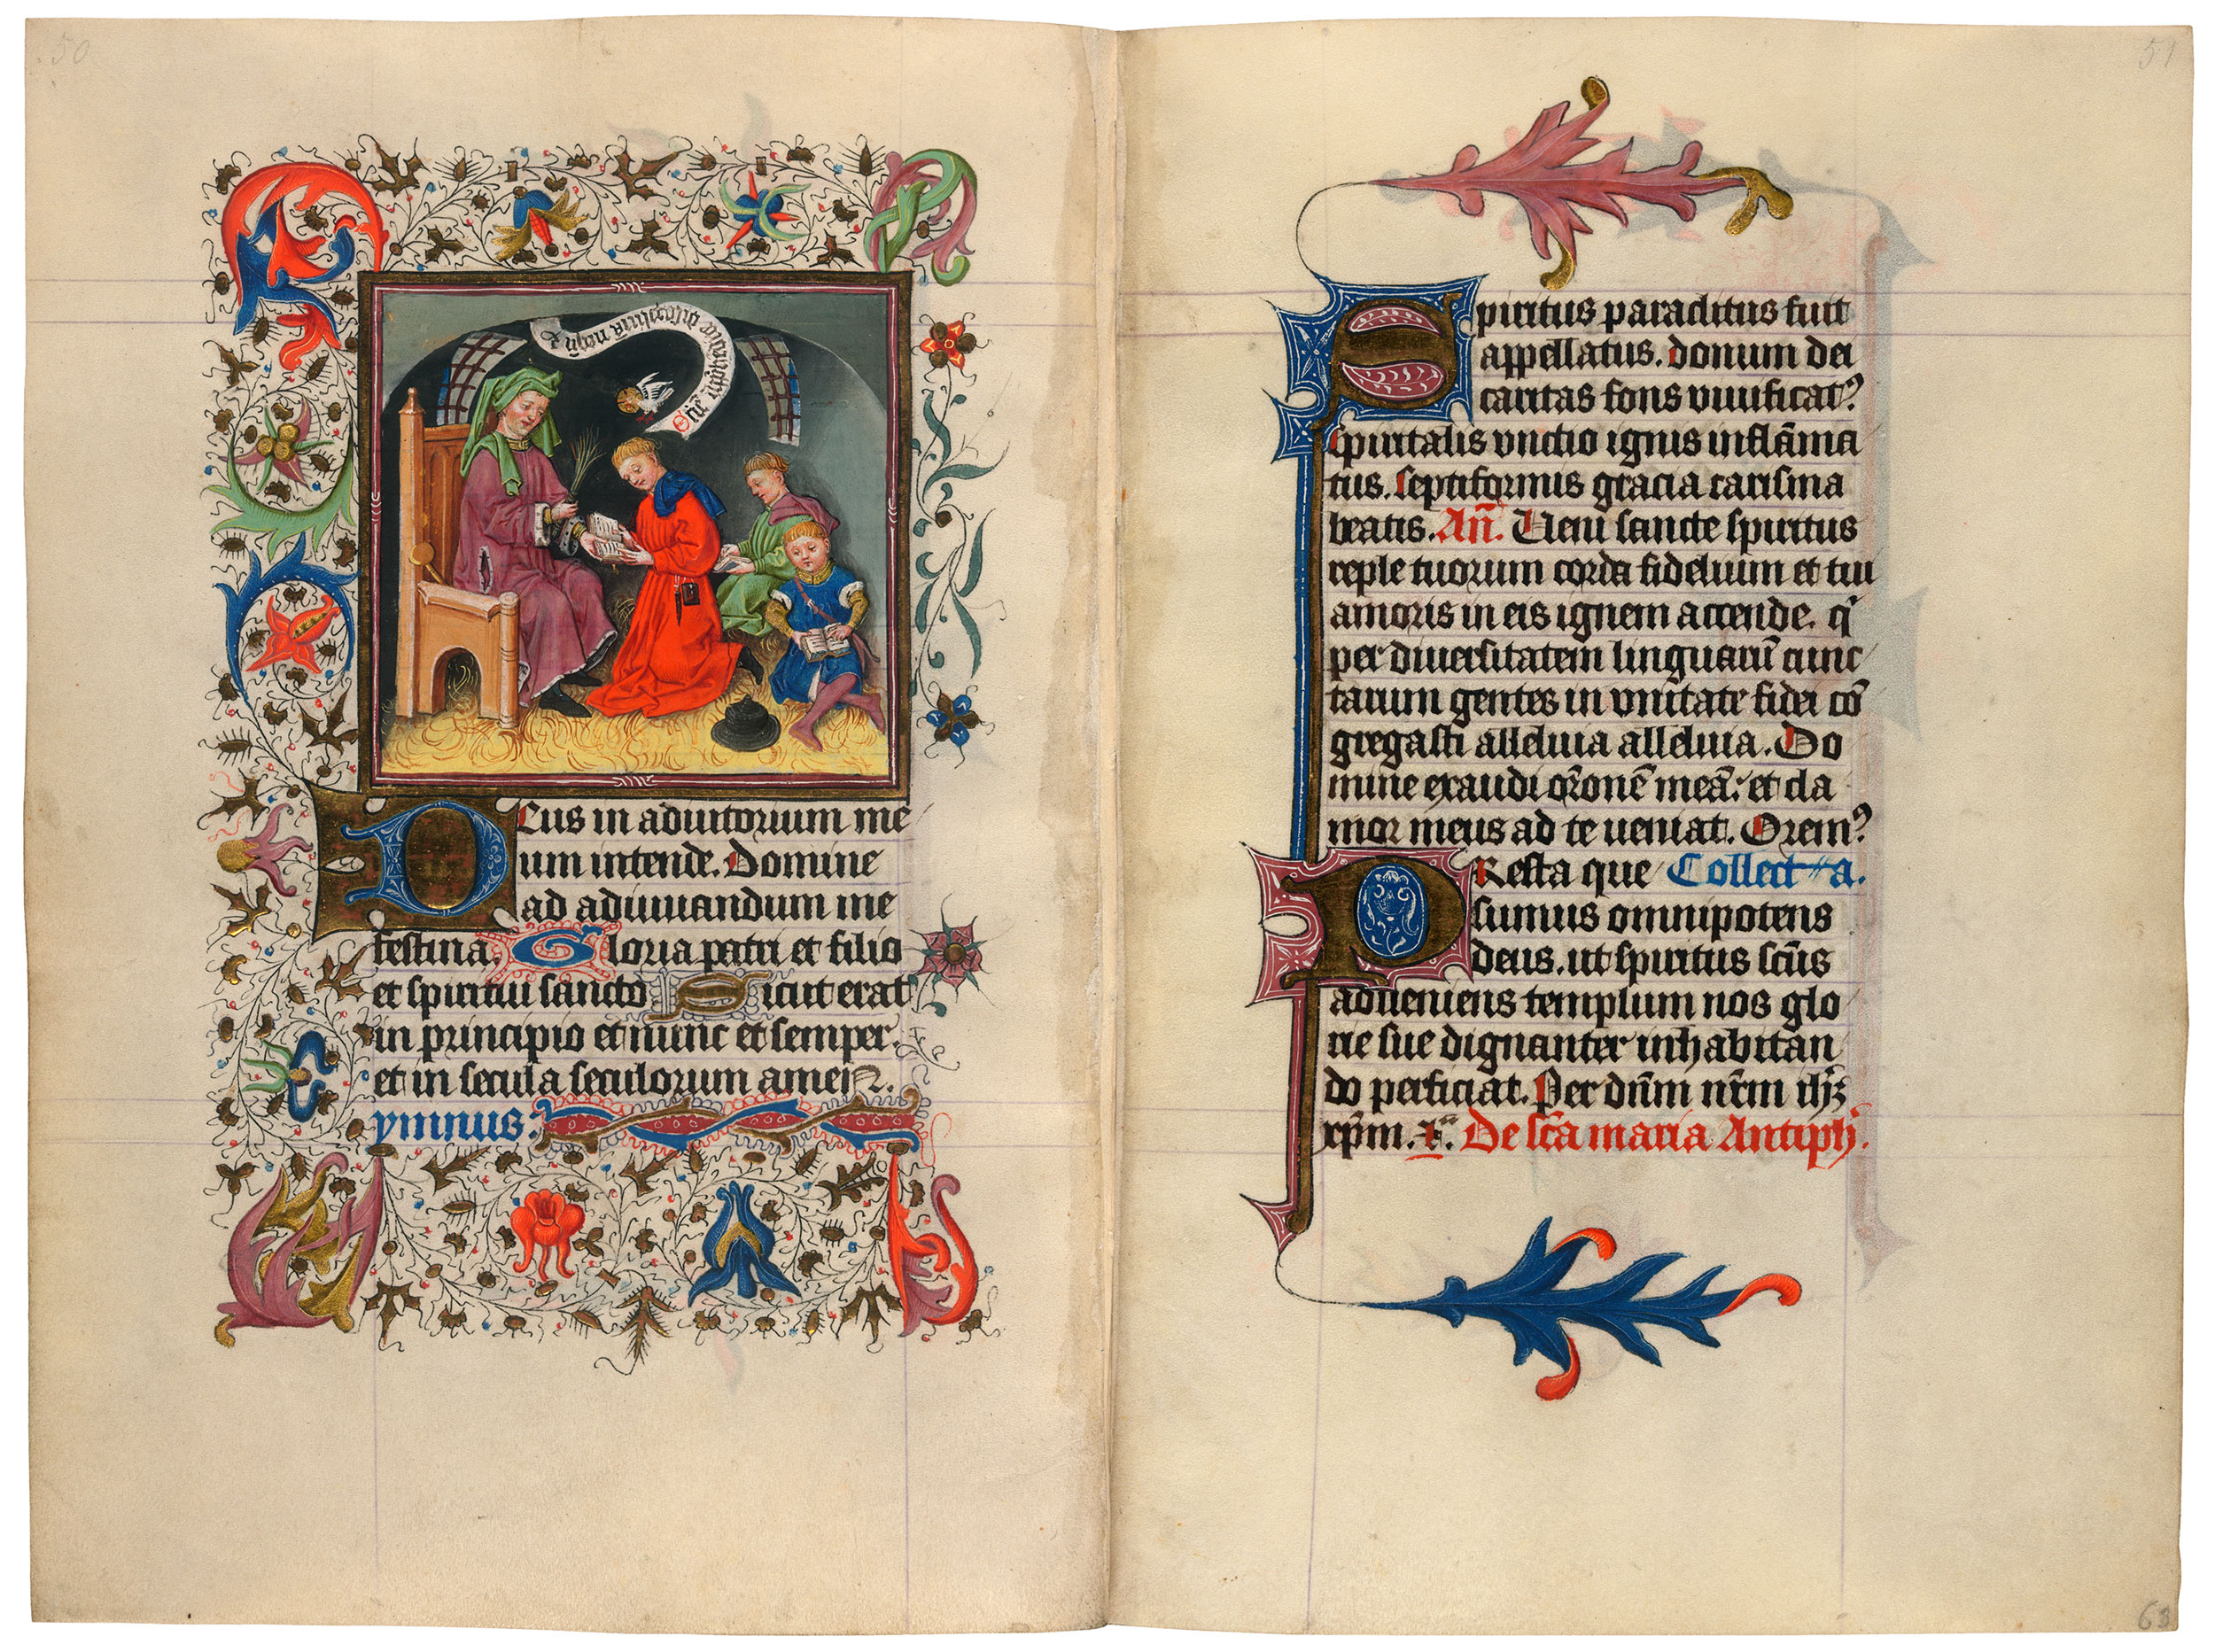 50
Deus in adiutorium me
um intende. Domine
ad adiuuandum me
festina. Gloria patri et filio
et spiritui sancto Sicut erat
in principio et nunc et semper.
et in secula seculorum amen.
ymnus:
51
Spiritus paraclitus fuit
appellatus. donum dei
caritas fons viuificatꝰ
spiritalis vnctio ignis inflāma
tus. septiformis gracia carisma
beatis. An̄. Ueni sancte spiritus
reple tuorum corda fidelium et tui
amoris in eis ignem accende. qͥ
per diuersitatem linguarū cunc
tarum gentes in vnitate fidei cō
gregasti alleluia alleluia. Do
mine exaudi or̄onē meā: et cla
mor meus ad te ueniat. Oremꝰ
Resta que Collecta.
sumus omnipotens
deus. ut spiritus sc̄us
adueniens templum nos glo
rie sue dignanter inhabitan
do perficiat. Per dn̄m nr̄m ih̄ꝫ
xp̄m. De sc̄a maria Antiph̄.
63